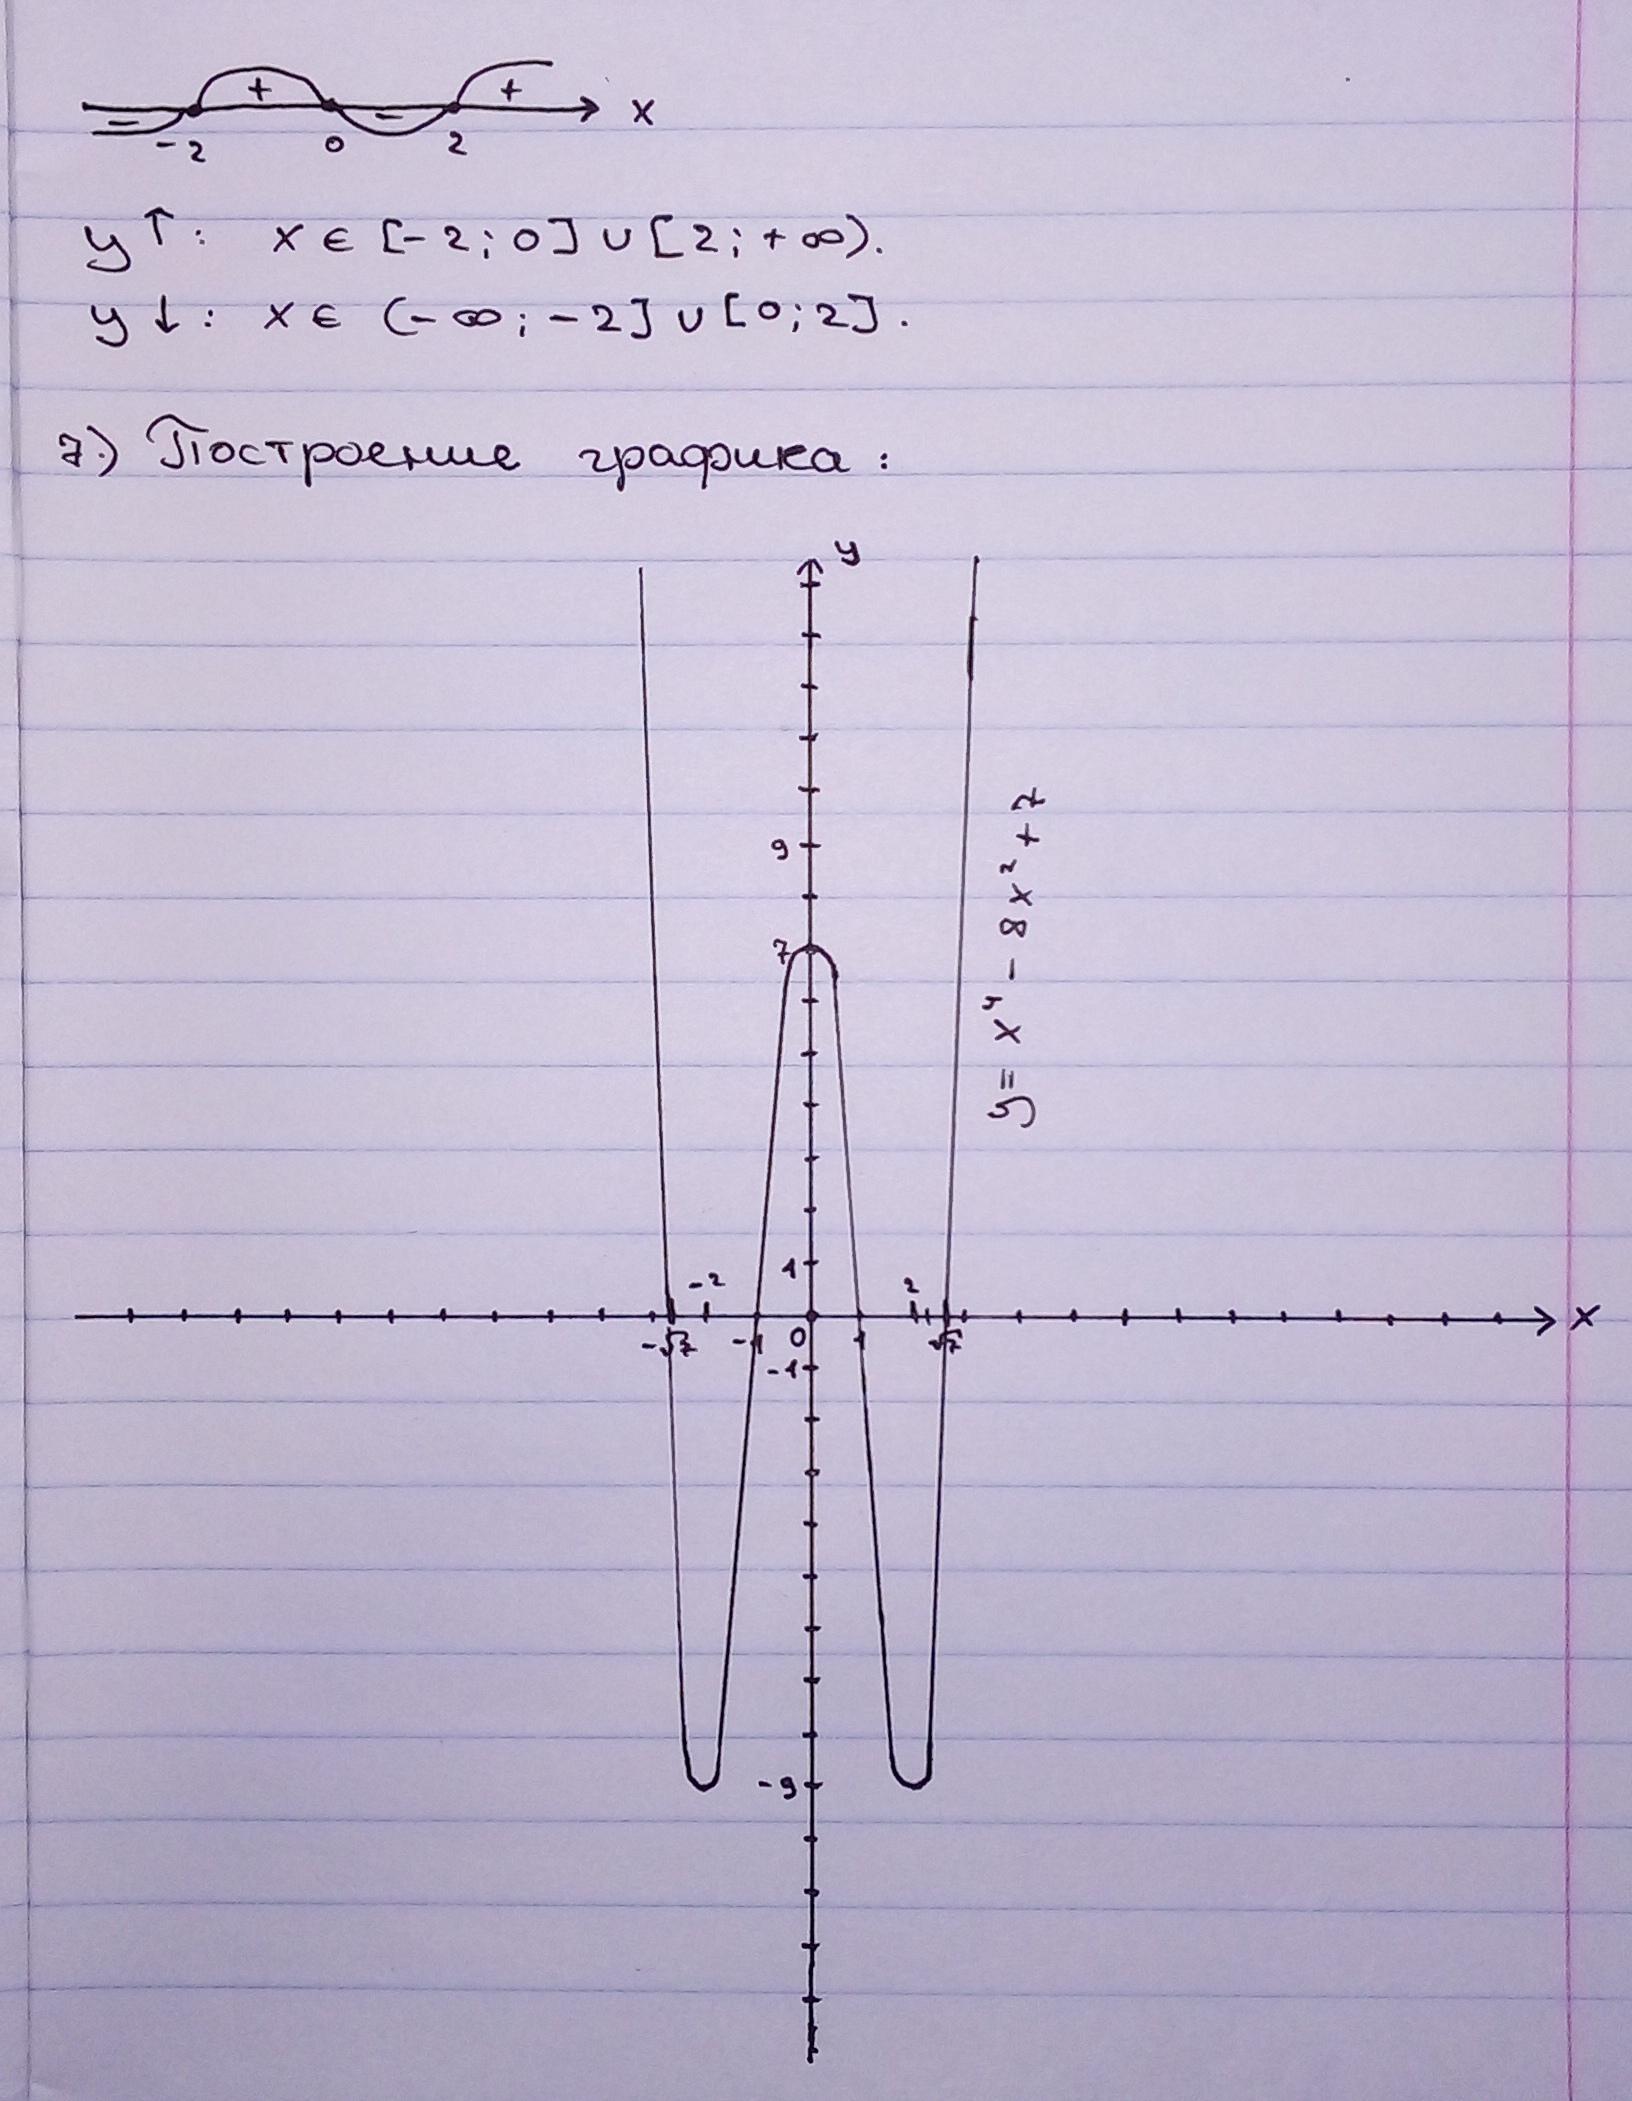 - + - + x
-2 0 2
y↑: x ∈ [-2; 0] ∪ [2; +∞).
y↓: x ∈ (-∞; -2] ∪ [0; 2].
7.) Построение графика:
y
9
7
y = x⁴ - 8x² + 7
1
-2 2
x
-√7 -1 0 1 √7
-1
-9